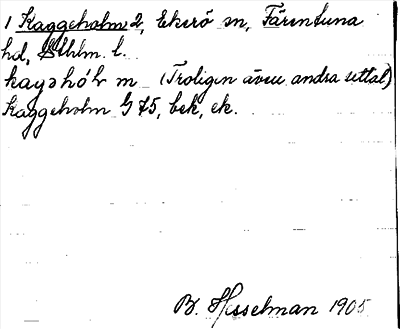 1 Kaggeholm 2, Ekerö sn, Färentuna
hd, Sthlm. l.
m (Troligen även andra uttal)
Kaggeholm G 75, bek, ek.
B. Hesselman 1905